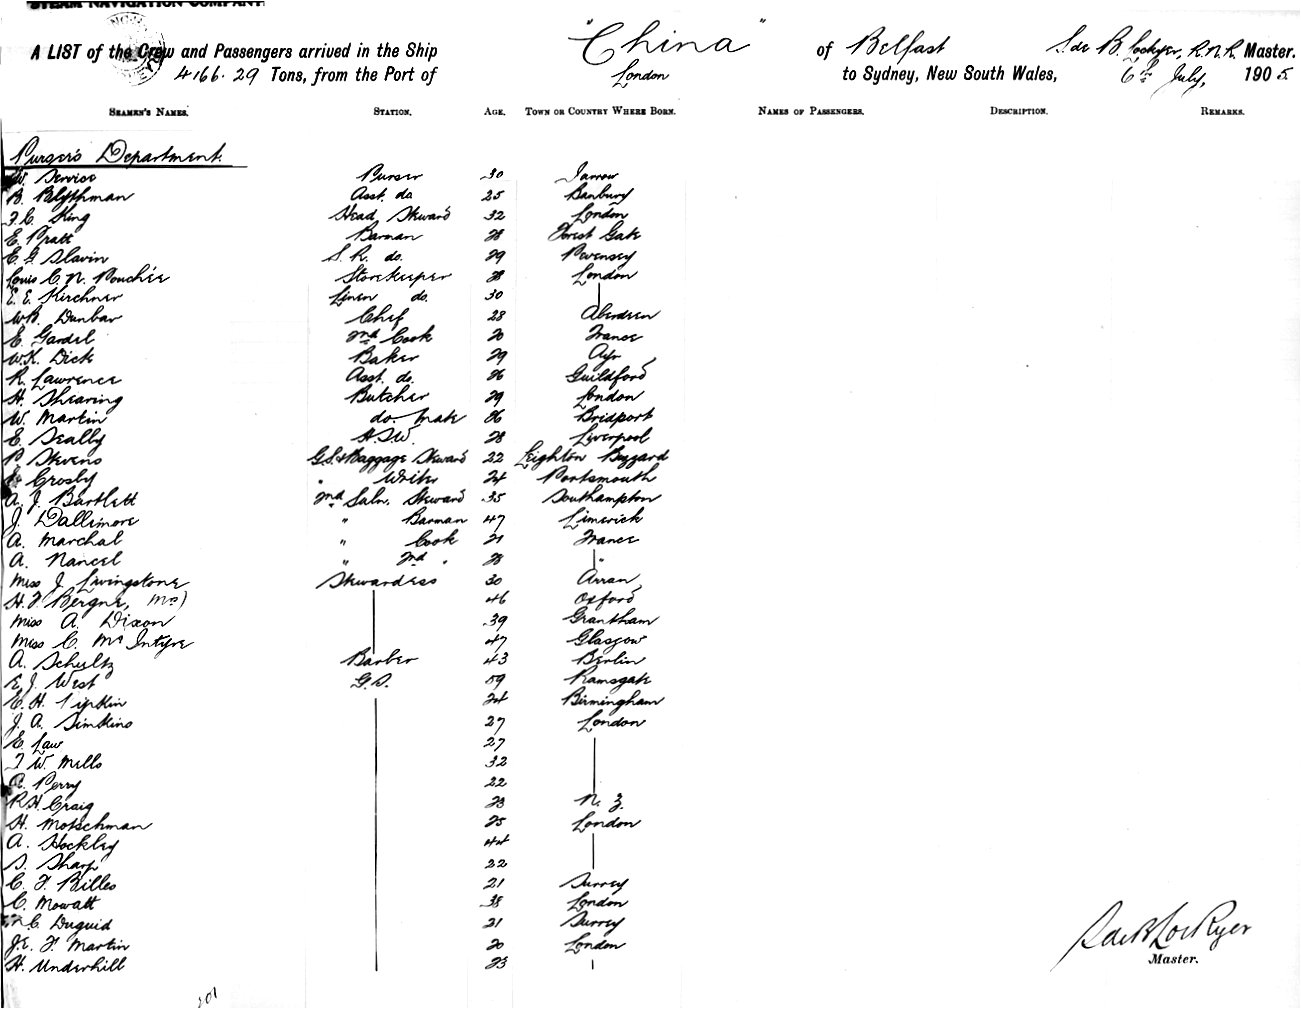 STEAM NAVIGATION COMPANY.
A LIST of the Crew and Passengers arrived in the Ship "China" of Belfast S. de B. Lockyer, R.N.R. Master.
4166.29 Tons, from the Port of London to Sydney, New South Wales, 6th July, 1905
SEAMEN'S NAMES. STATION. AGE. TOWN OR COUNTRY WHERE BORN. NAMES OF PASSENGERS. DESCRIPTION. REMARKS.
Purser's Department.
W. Service Purser 30 Jarrow
B. Blythman Asst. do. 25 Banbury
F.C. King Head Steward 32 London
E. Pratt Barman 28 Forest Gate
C. G. Slavin S. R. do. 29 Pevensey
Louis C. N. Pouchée Storekeeper 28 London
E. E. Kirchner Linen do. 30
W.B. Dunbar Chef 28 Aberdeen
E. Gardel 2nd Cook 20 France
W.K. Dick Baker 29 Ayr
R. Lawrence Asst. do. 26 Guildford
H. Shearing Butcher 29 London
W. Martin do. Mate 26 Bridport
E. Seally H.S.W. 28 Liverpool
P. Stevens G.S. & Baggage Steward 22 Leighton Buzzard
Crosby " Writer 24 Portsmouth
A. J. Bartlett 2nd Saln. Steward 35 Southampton
J. Dallimore " Barman 47 Limerick
A. Marchal " Cook 21 France
A. Nancel " 2nd " 28 "
Miss J. Livingstone Stewardess 30 Arran
H. F. Bergne, Mrs) 46 Oxford
Miss A. Dixon 39 Grantham
Miss C. McIntyre 47 Glasgow
A. Schultz Barber 43 Berlin
E. J. West G.S. 59 Ramsgate
E. H. Tipkin 24 Birmingham
J. A. Simkins 27 London
E. Law 27
F. W. Mills 32
Perry 22
R.H. Craig 28 N. Z.
H. Motschman 25 London
A. Hockley 44
S. Sharp 22
C. F. Billes 21 Surrey
C. Mowatt 38 London
C. Duguid 21 Surrey
J.E. F. Martin 20 London
H. Underhill 23
S de B Lockyer
Master.
201